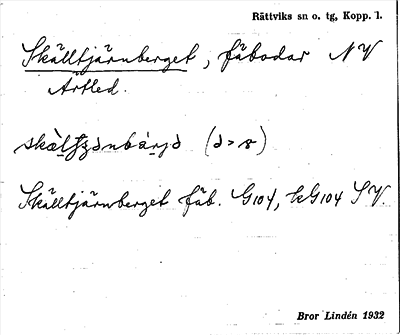 Rättviks sn o. tg, Kopp. l.
Skålltjärnberget, fäbodar NV
Artled.
Skålltjärnberget fäb. G104, kG104 SV.
Bror Lindén 1932